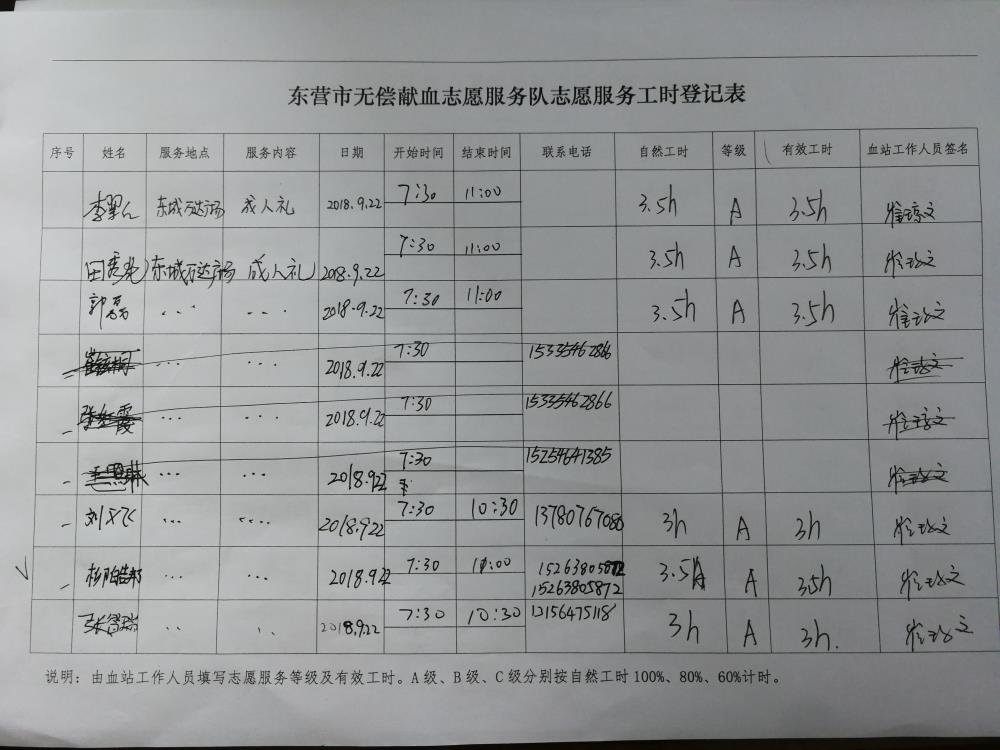 东营市无偿献血志愿服务队志愿服务工时登记表
序号 姓名 服务地点 服务内容 日期 开始时间 结束时间 联系电话 自然工时 等级 有效工时 血站工作人员签名
东城万达广场 成人礼 2018.9.22 7:30 11:00 3.5h A 3.5h
田秀光 东城万达广场 成人礼 2018.9.22 7:30 11:00 3.5h A 3.5h
郭磊 ... ... 2018.9.22 7:30 11:00 3.5h A 3.5h
... ... 2018.9.22 7:30 15335462866
张红霞 ... ... 2018.9.22 7:30 15335462866
... ... 2018.9.22 7:30 15254641385
... .... 2018.9.22 7:30 10:30 3h A 3h
... ... 2018.9.22 7:30 11:00 15263805872 3.5h A 3.5h
15263805872
.. .. 2018.9.22 7:30 10:30 13156475118 3h A 3h.
说明：由血站工作人员填写志愿服务等级及有效工时。A级、B级、C级分别按自然工时100%、80%、60%计时。